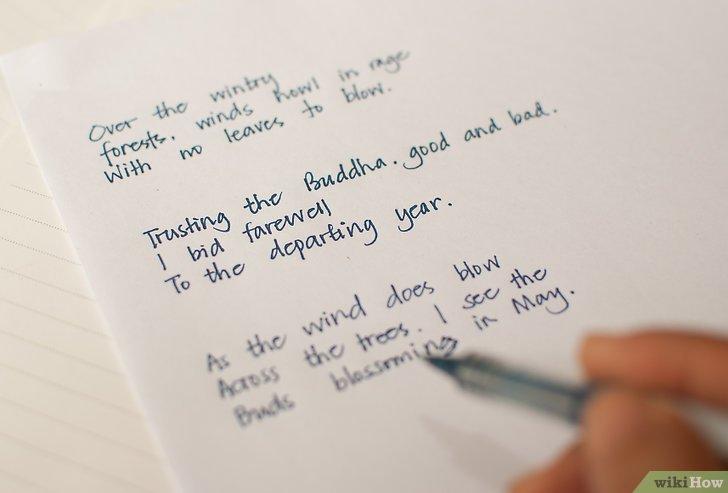 Over the wintry
forests. winds howl in rage
With no leaves to blow.
Trusting the Buddha. good and bad.
I bid farewell
To the departing year.
As the wind does blow
Across the trees. I see the
Buds blossoming in May.
wikiHow